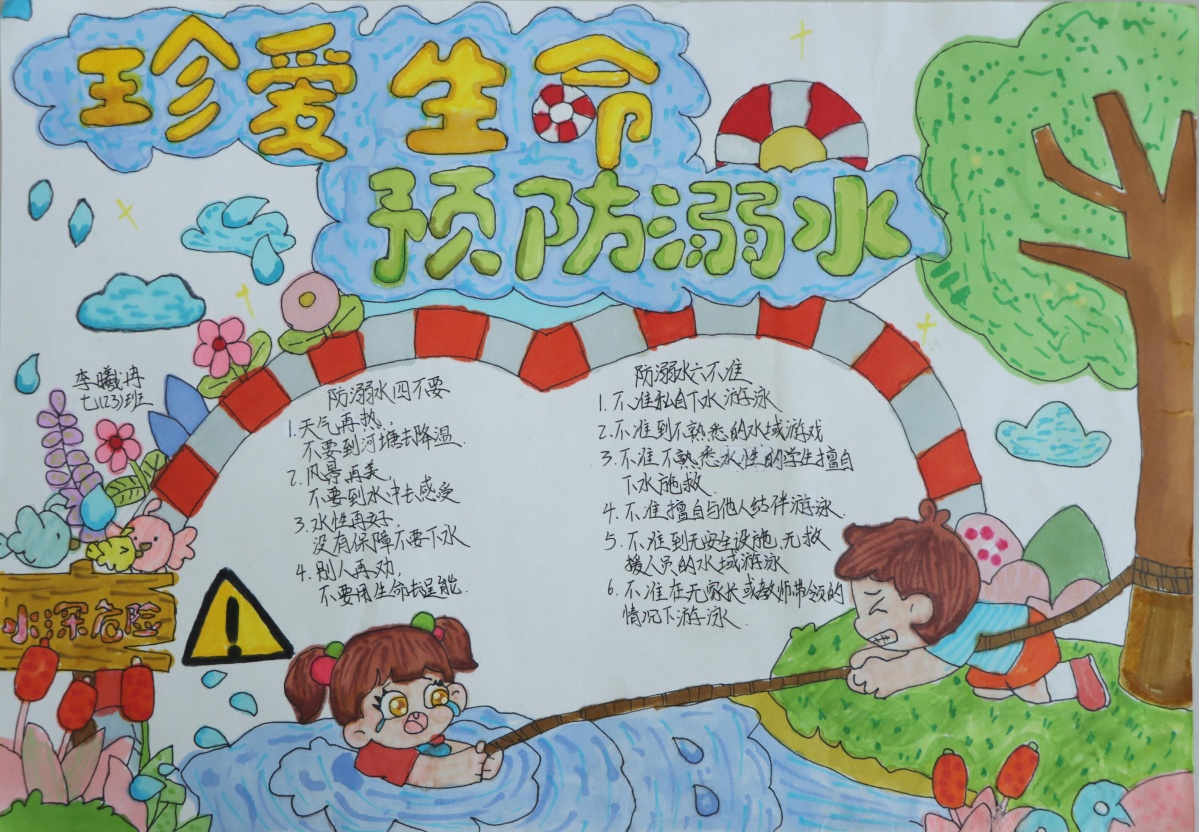 珍爱生命
预防溺水
李曦冉
七(23)班
防溺水四不要
1.天气再热,
不要到河塘去降温.
2.风景再美,
不要到水冲去感受
3.水性再好,
没有保障不要下水
4.别人再劝,
不要用生命去逞能.
防溺水六不准
1.不准私自下水游泳
2.不准到不熟悉的水域游戏
3.不准不熟悉水性的学生擅自
下水施救.
4.不准擅自与他人结伴游泳.
5.不准到无安全设施,无救
援人员的水域游泳
6.不准在无家长或教师带领的
情况下游泳.
水深危险
!